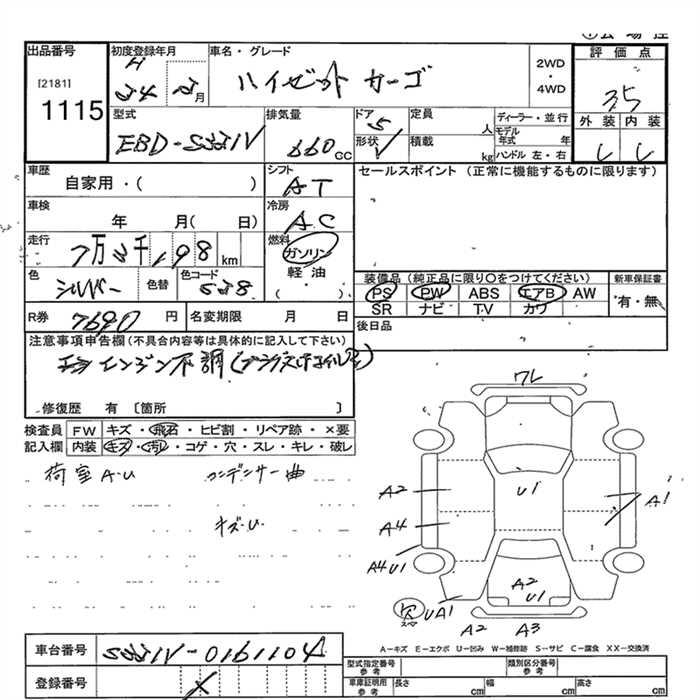 出品番号
[2181]
1115
初度登録年月
H
24 2月
車名・グレード
ハイゼットカーゴ
2WD
・
4WD
評価点
3.5
外装 内装
型式
EBD-S331V
排気量
660cc
ドア
5
形状
V
定員
人
積載
kg
ディーラー・並行
モデル年式 年
ハンドル 左・右
車歴
自家用・( )
シフト
AT
セールスポイント (正常に機能するものに限ります)
車検
年 月( 日)
冷房
AC
走行
km
燃料
ガソリン
軽油
( )
色
シルバー
色替
色コード
装備品 (純正品に限り○をつけてください)
PS PW ABS エアB AW
SR ナビ TV カワ
新車保証書
有・無
R券
7690円
名変期限 月 日
後日品
注意事項申告欄(不具合内容等は具体的に記入して下さい)
エンジン不調
修復歴 有 〔箇所 〕
検査員記入欄
FW キズ・飛石・ヒビ割・リペア跡・×要
内装 キズ・汚れ・コゲ・穴・スレ・キレ・破レ
荷室A・U コンデンサー曲
キズ・U
ワレ
A2
U1
A1
A4
A4U1
A2
U1
UA1
A2 A3
A-キズ E-エクボ U-凹み W-補修跡 S-サビ C-腐食 XX-交換済
車台番号
S331V-0161104
登録番号
X
型式指定番号
参考
類別区分番号
参考
車庫証明用
参考
長さ cm
幅 cm
高さ cm